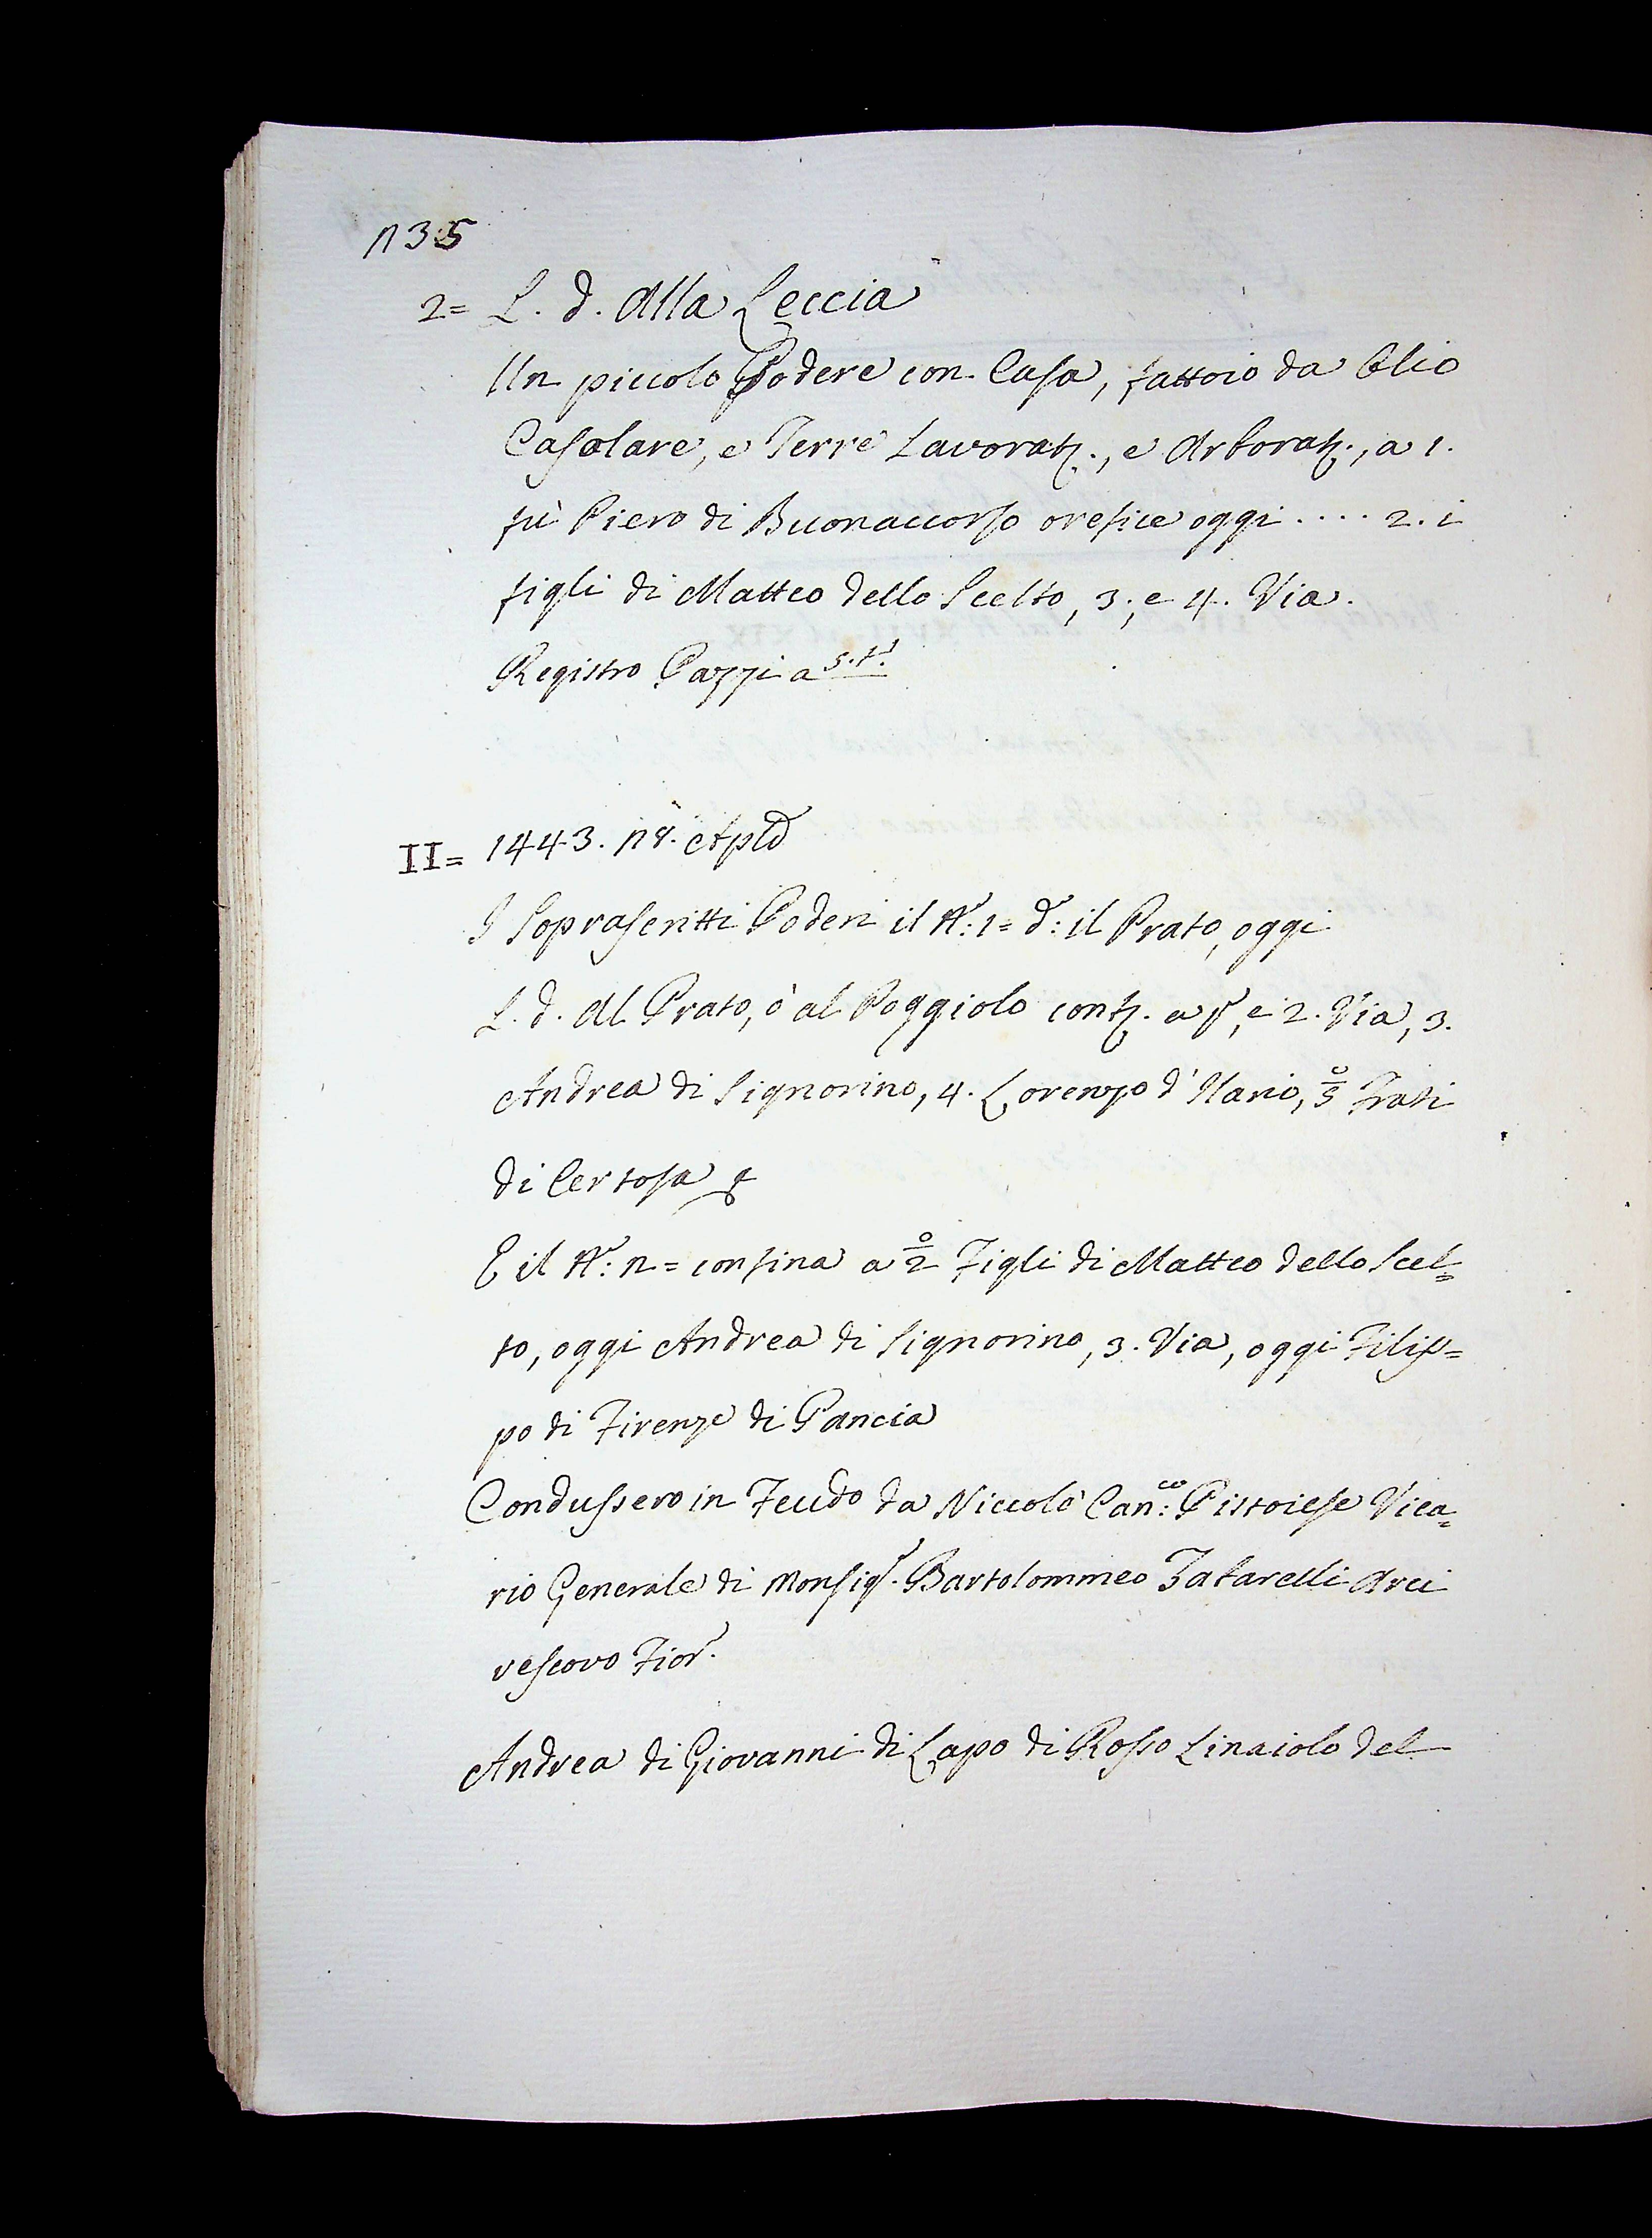 235
2= L. d. Alla Leccia
Un piccolo Podere con Casa, fattoio da Olio
Casolare, e Terre Lavorat., e Arborat., a 1.
fù Piero di Buonaccorso orefice oggi .... 2. i
figli di Matteo dello Scelto, 3., e 4. Via.
Registro Pazzi a
II= 1443. 28. Aple
I Soprascritti Poderi il N: 1= d: il Prato, oggi
L. d. Al Prato, ò al Poggiolo conf. a p, e 2. Via, 3.
Andrea di Signorino, 4. Lorenzo d'Ilario, 5 Frati
di Certosa
E il N: 2= confina a 2 Figli di Matteo dello Scel=
to, oggi Andrea di Signorino, 3. Via, oggi Filip=
po di Firenze di Pancia
Condussero in Feudo da Niccolò Can:co Pistoiese Vica=
rio Generale di Monsigr. Bartolommeo Zabarelli Arci
vescovo Fior.
Andrea di Giovanni di Lapo di Rosso Linaiolo del